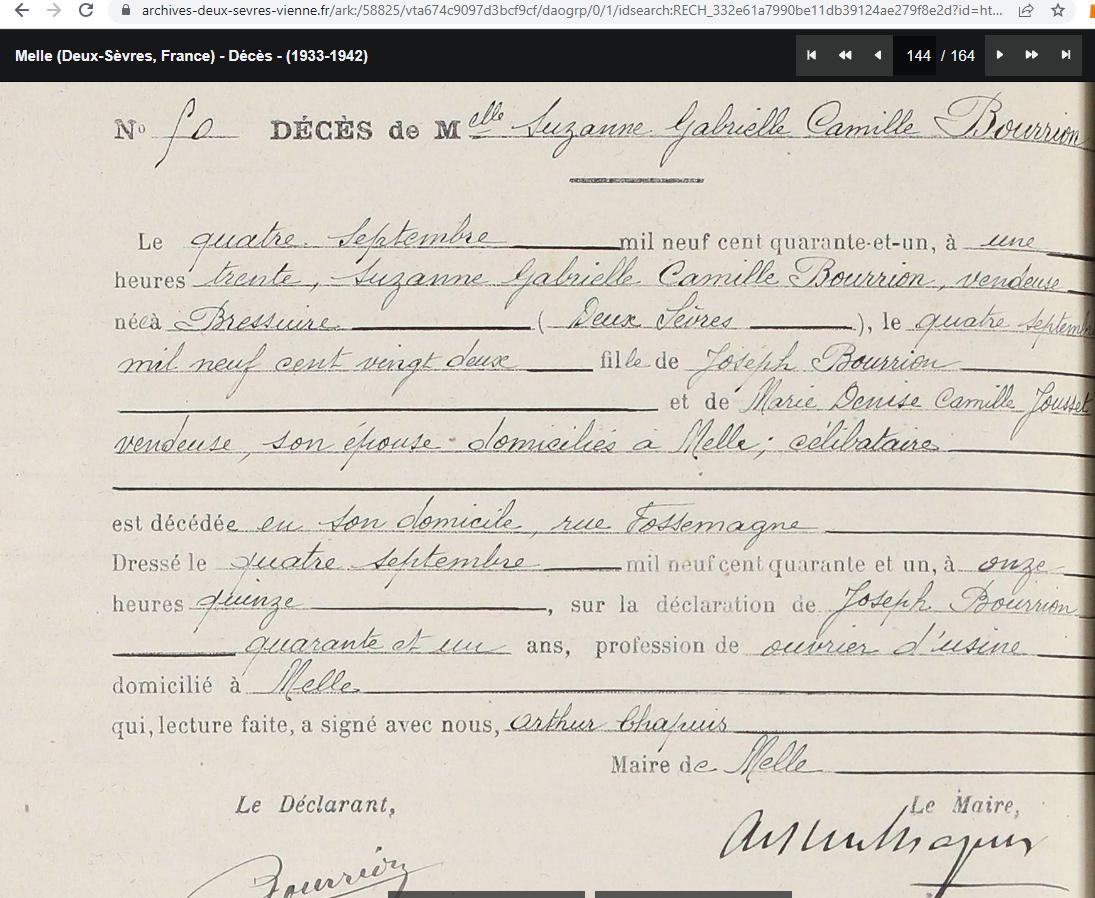 archives-deux-sevres-vienne.fr/ark:/58825/vta674c9097d3bcf9cf/daogrp/0/1/idsearch:RECH_332e61a7990be11db39124ae279f8e2d?id=ht...
Melle (Deux-Sèvres, France) - Décès - (1933-1942) 144 / 164
No 50 DÉCÈS de Melle Suzanne Gabrielle Camille Bourrion
Le quatre Septembre mil neuf cent quarante-et-un, à une
heures trente, Suzanne Gabrielle Camille Bourrion, vendeuse
née à Bressuire (Deux Sèvres), le quatre septembre
mil neuf cent vingt deux fille de Joseph Bourrion
et de Marie Denise Camille Jousset
vendeuse, son épouse domiciliés à Melle; célibataire
est décédée en son domicile, rue Fossemagne
Dressé le quatre septembre mil neuf cent quarante et un, à onze
heures quinze, sur la déclaration de Joseph Bourrion
quarante et un ans, profession de ouvrier d'usine
domicilié à Melle
qui, lecture faite, a signé avec nous, Arthur Chapuis
Maire de Melle
Le Déclarant, Le Maire,
Bourrion